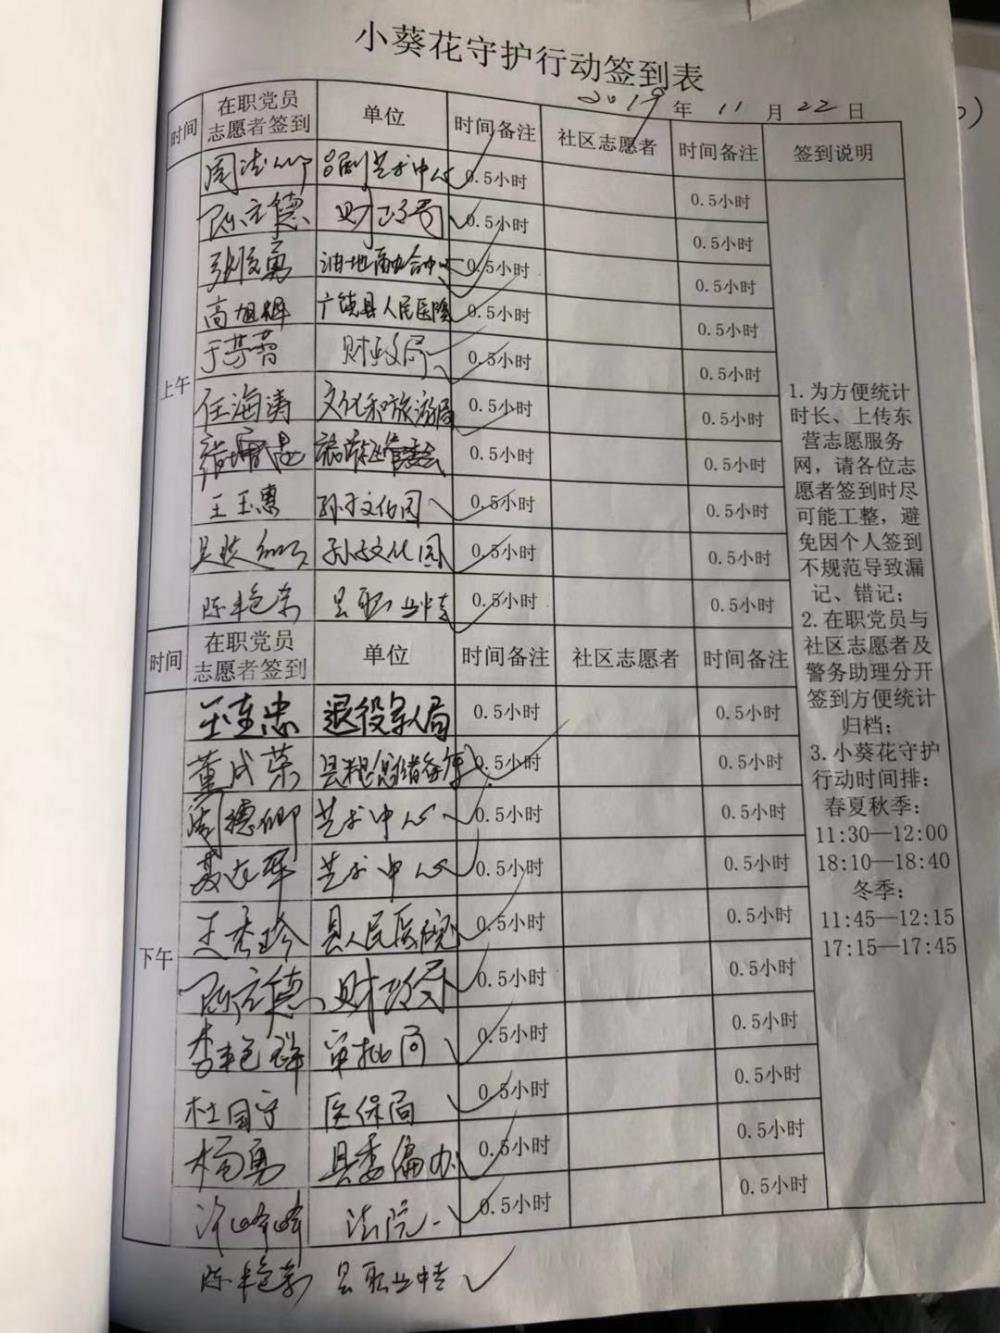 小葵花守护行动签到表
2019年 11月 22日
时间 在职党员志愿者签到 单位 时间备注 社区志愿者 时间备注 签到说明
上午
吕剧艺术中心 0.5小时 0.5小时
陈立德 财政局 0.5小时 0.5小时
0.5小时 0.5小时
高旭辉 广饶县人民医院 0.5小时 0.5小时
财政局 0.5小时 0.5小时
任海涛 文化和旅游局 0.5小时 0.5小时
0.5小时 0.5小时
王玉惠 孙子文化园 0.5小时 0.5小时
孙子文化园 0.5小时 0.5小时
陈艳荣 县职业中专 0.5小时 0.5小时
时间 在职党员志愿者签到 单位 时间备注 社区志愿者 时间备注
下午
退役军人局 0.5小时 0.5小时
董成荣 0.5小时 0.5小时
周德卿 艺术中心 0.5小时 0.5小时
艺术中心 0.5小时 0.5小时
王秀珍 县人民医院 0.5小时 0.5小时
陈立德 财政局 0.5小时 0.5小时
李艳群 审批局 0.5小时 0.5小时
杜国守 医保局 0.5小时 0.5小时
杨勇 县委编办 0.5小时 0.5小时
许峰峰 法院 0.5小时 0.5小时
陈艳荣 县职业中专
1.为方便统计
时长、上传东
营志愿服务
网，请各位志
愿者签到时尽
可能工整，避
免因个人签到
不规范导致漏
记、错记；
2.在职党员与
社区志愿者及
警务助理分开
签到方便统计
归档；
3.小葵花守护
行动时间排：
春夏秋季：
11:30—12:00
18:10—18:40
冬季：
11:45—12:15
17:15—17:45